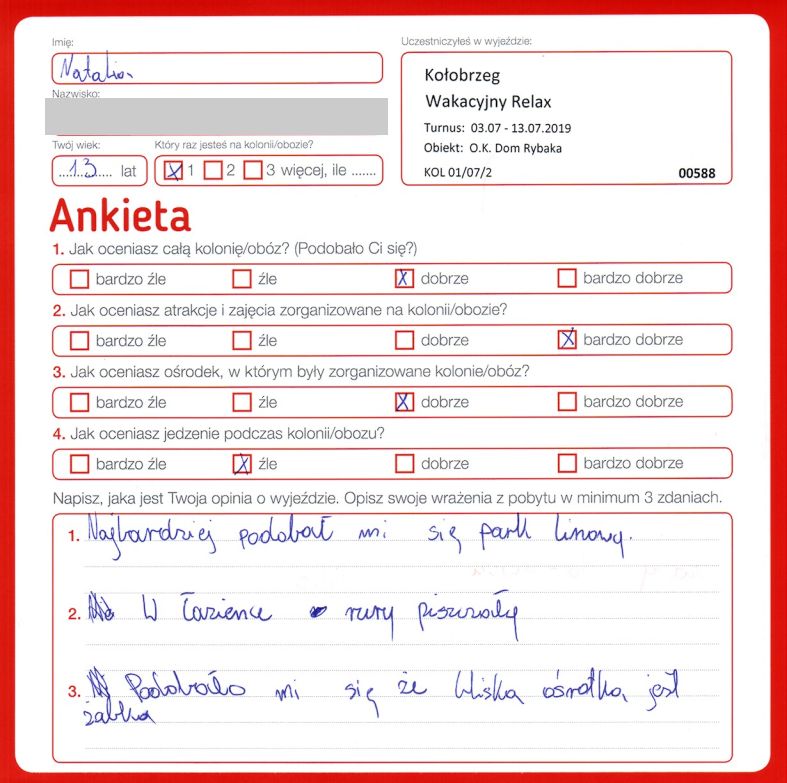 Imię:
Natalia
Nazwisko:
Twój wiek:
13 lat
Który raz jesteś na kolonii/obozie?
1 2 3 więcej, ile .......
Uczestniczyłeś w wyjeździe:
Kołobrzeg
Wakacyjny Relax
Turnus: 03.07 - 13.07.2019
Obiekt: O.K. Dom Rybaka
KOL 01/07/2 00588
Ankieta
1. Jak oceniasz całą kolonię/obóz? (Podobało Ci się?)
bardzo źle źle dobrze bardzo dobrze
2. Jak oceniasz atrakcje i zajęcia zorganizowane na kolonii/obozie?
bardzo źle źle dobrze bardzo dobrze
3. Jak oceniasz ośrodek, w którym były zorganizowane kolonie/obóz?
bardzo źle źle dobrze bardzo dobrze
4. Jak oceniasz jedzenie podczas kolonii/obozu?
bardzo źle źle dobrze bardzo dobrze
Napisz, jaka jest Twoja opinia o wyjeździe. Opisz swoje wrażenia z pobytu w minimum 3 zdaniach.
1. Najbardziej podobał mi się park linowy.
2. W łazience rury piszczały
3. Podobało mi się że bliska ośrotka jest
żabka